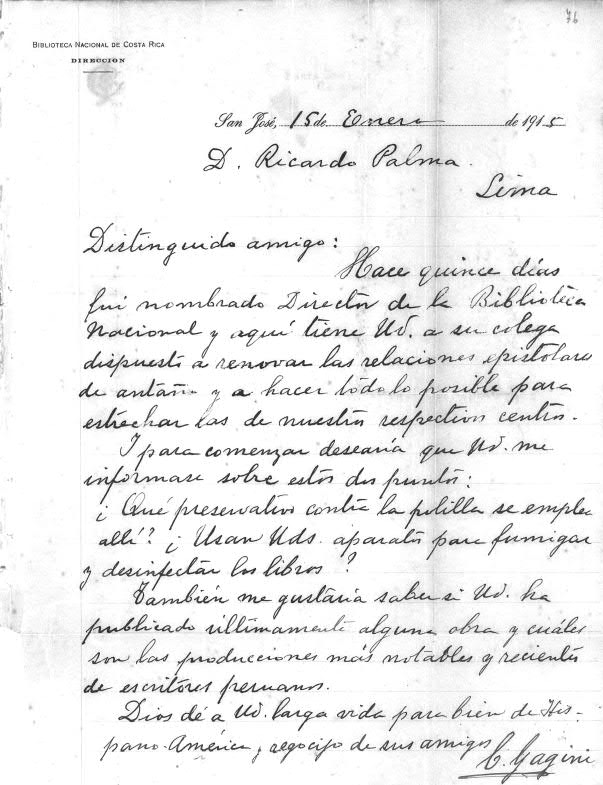 76
BIBLIOTECA NACIONAL DE COSTA RICA
DIRECCION
San José, 15 de Enero de 1915
D. Ricardo Palma.
Lima
Distinguido amigo:
Hace quince días
fuí nombrado Director de la Biblioteca
Nacional y aquí tiene Ud. a su colega
dispuesto a renovar las relaciones epistolares
de antaño y a hacer todo lo posible para
estrechar las de nuestros respectivos centros.
I para comenzar desearía que Ud. me
informase sobre estos dos puntos:
¿Qué preservativo contra la polilla se emplea
allí? ¿Usan Uds. aparatos para fumigar
y desinfectar los libros?
También me gustaría saber si Ud. ha
publicado últimamente alguna obra y cuáles
son las producciones más notables y recientes
de escritores peruanos.
Dios dé a Ud. larga vida para bien de His-
pano-América y regocijo de sus amigos
C. Gagini